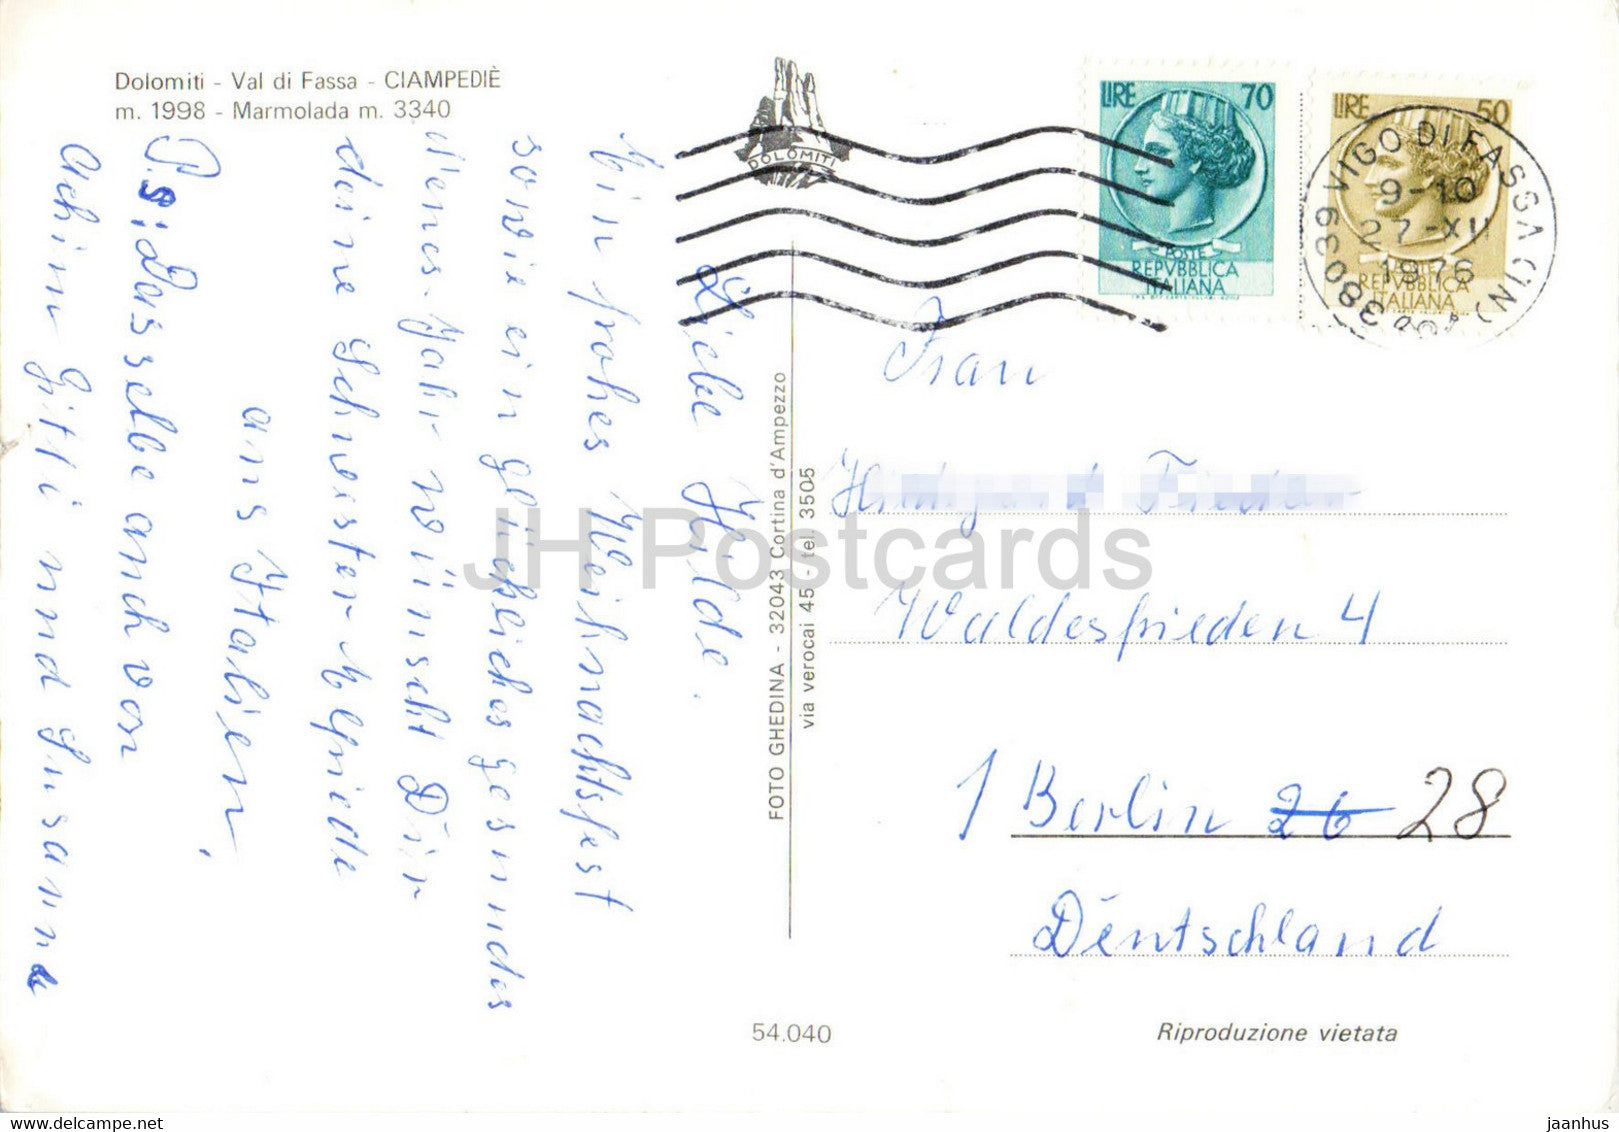 Dolomiti - Val di Fassa - CIAMPEDIÈ
m. 1998 - Marmolada m. 3340
DOLOMITI
LIRE 70
POSTE
REPVBBLICA
ITALIANA
LIRE 50
POSTE
REPVBBLICA
ITALIANA
38039 VIGO DI FASSA (TN)
9-10
27-XII
1976
Liebe Hilde.
Ein frohes Weihnachtsfest
sowie ein glückliches gesundes
Neues-Jahr wünscht Dir
deine Schwester Elfriede
aus Italien.
P.S: Dasselbe auch von
Achim Gitti und Susanne
FOTO GHEDINA - 32043 Cortina d'Ampezzo
via verocai 45 - tel. 3505
Frau
Waldesfrieden 4
1 Berlin 26 28
Deutschland
54.040
Riproduzione vietata
JH Postcards
jaanhus